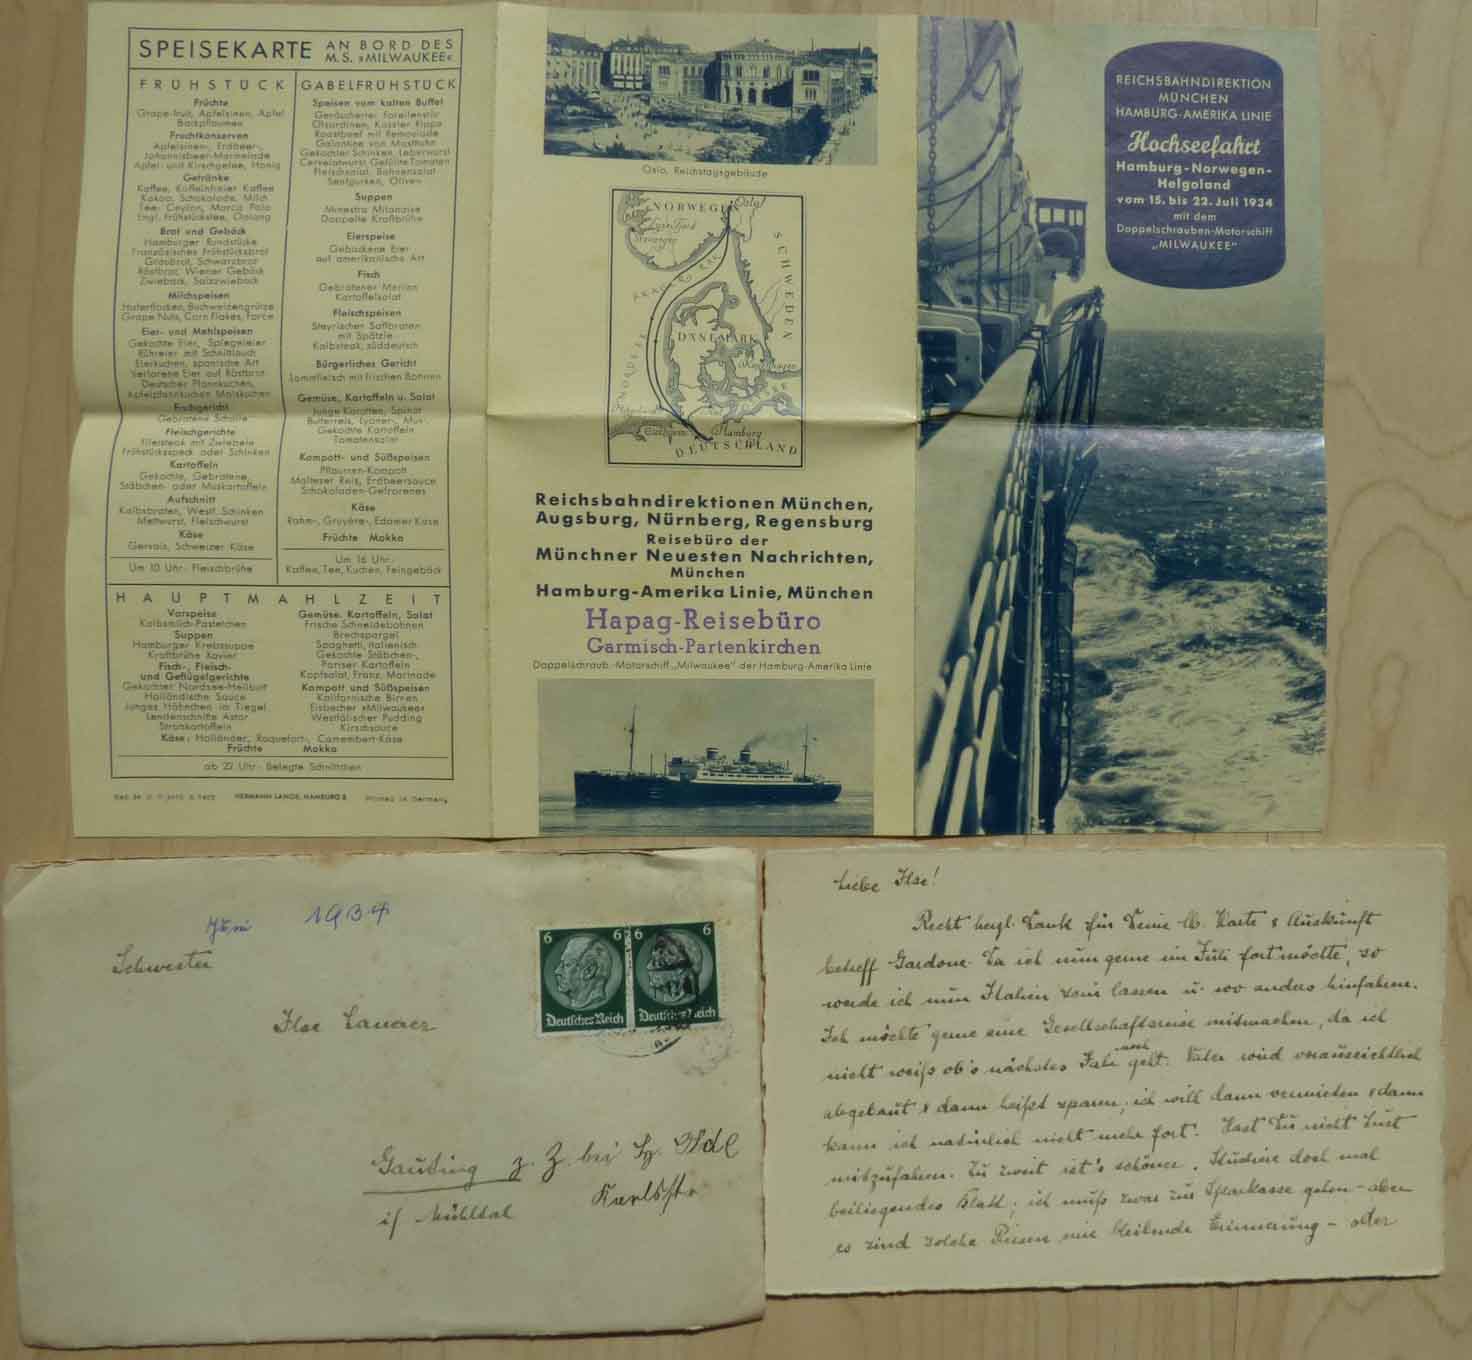 SPEISEKARTE AN BORD DES
M.S. »MILWAUKEE«
FRÜHSTÜCK
Früchte
Grape-fruit, Apfelsinen, Äpfel
Backpflaumen
Fruchtkonserven
Apfelsinen-, Erdbeer-,
Johannisbeer-Marmelade
Apfel- und Kirschgelee, Honig
Getränke
Kaffee, Koffeinfreier Kaffee
Kakao, Schokolade, Milch
Tee: Ceylon, Marco Polo
Engl. Frühstückstee, Oolong
Brot und Gebäck
Hamburger Rundstücke
Französisches Frühstücksbrot
Grahambrot, Schwarzbrot
Röstbrot, Wiener Gebäck
Zwieback, Salzzwieback
Milchspeisen
Haferflocken, Buchweizengrütze
Grape Nuts, Corn Flakes, Force
Eier- und Mehlspeisen
Gekochte Eier, Spiegeleier
Rühreier mit Schnittlauch
Eierkuchen, spanische Art
Verlorene Eier auf Röstbrot
Deutscher Pfannkuchen,
Apfelpfannkuchen Maiskuchen
Fischgericht
Gebratene Scholle
Fleischgerichte
Filetsteak mit Zwiebeln
Frühstücksspeck oder Schinken
Kartoffeln
Gekochte, Gebratene,
Stäbchen- oder Muskartoffeln
Aufschnitt
Kalbsbraten, Westf. Schinken
Mettwurst, Fleischwurst
Käse
Gervais, Schweizer Käse
Um 10 Uhr: Fleischbrühe
GABELFRÜHSTÜCK
Speisen vom kalten Büffet
Geräucherter Forellenstör
Ölsardinen, Kassler Rippe
Roastbeef mit Remolade
Galantine von Masthuhn
Gekochter Schinken, Leberwurst
Cervelatwurst, Gefüllte Tomaten
Fleischsalat, Bohnensalat
Senfgurken, Oliven
Suppen
Minestra Milanaise
Doppelte Kraftbrühe
Eierspeise
Gebackene Eier
auf amerikanische Art
Fisch
Gebratener Merlan
Kartoffelsalat
Fleischspeisen
Steyrischer Saftbraten
mit Spätzle
Kalbsteak, süddeutsch
Bürgerliches Gericht
Lammfleisch mit frischen Bohnen
Gemüse, Kartoffeln u. Salat
Junge Karotten, Spinat
Butterreis, Lyoner-, Mus-,
Gekochte Kartoffeln
Tomatensalat
Kompott- und Süßspeisen
Pflaumen-Kompott
Malteser Reis, Erdbeersauce
Schokoladen-Gefrorenes
Käse
Rahm-, Gruyère-, Edamer Käse
Früchte Mokka
Um 16 Uhr:
Kaffee, Tee, Kuchen, Feingebäck
HAUPTMAHLZEIT
Vorspeise
Kalbsmilch-Pastetchen
Suppen
Hamburger Krebssuppe
Kraftbrühe Xavier
Fisch-, Fleisch-
und Geflügelgerichte
Gekochter Nordsee-Heilbutt
Holländische Sauce
Junges Hähnchen im Tiegel
Lendenschnitte Astor
Strohkartoffeln
Gemüse, Kartoffeln, Salat
Frische Schneidebohnen
Brechspargel
Spaghetti, italienisch
Gekochte Stäbchen-,
Pariser Kartoffeln
Kopfsalat, Franz. Marinade
Kompott und Süßspeisen
Kalifornische Birnen
Eisbecher »Milwaukee«
Westfälischer Pudding
Kirschsauce
Käse: Holländer, Roquefort-, Camembert-Käse
Früchte Mokka
ab 22 Uhr: Belegte Schnittchen
HERMANN LANGE, HAMBURG 8
Printed in Germany
Oslo, Reichstagsgebäude
NORWEGEN
Oslo
Stavanger
SKAGERRAK
SCHWEDEN
NORDSEE
DÄNEMARK
Kopenhagen
Helgoland
Kiel
Cuxhaven
Hamburg
DEUTSCHLAND
Reichsbahndirektionen München,
Augsburg, Nürnberg, Regensburg
Reisebüro der
Münchner Neuesten Nachrichten,
München
Hamburg-Amerika Linie, München
Hapag-Reisebüro
Garmisch-Partenkirchen
Doppelschraub.-Motorschiff „Milwaukee" der Hamburg-Amerika Linie
REICHSBAHNDIREKTION
MÜNCHEN
HAMBURG-AMERIKA LINIE
Hochseefahrt
Hamburg-Norwegen-
Helgoland
vom 15. bis 22. Juli 1934
mit dem
Doppelschrauben-Motorschiff
„MILWAUKEE"
Juni 1934
Schwester
Ilse
Gauting z. Z. bei
if Mühltal Karlsstr.
6 6 6 6
Deutsches Reich Deutsches Reich
Liebe Ilse!
Recht herzl. Dank für Deine lb. Karte & Auskunft
betreff Gardone. Da ich nun gerne im Juli fort möchte, so
werde ich nun Italien sein lassen u. wo anders hinfahren.
Ich möchte gerne eine Gesellschaftsreise mitmachen, da ich
nicht weiß ob's nächstes Jahr noch geht. Vater wird voraussichtlich
abgebaut & dann heißt sparen, ich will dann vermieten & dann
kann ich natürlich nicht mehr fort. Hast Du nicht Lust
mitzufahren. Zu zweit ist's schöner. Studiere doch mal
beiliegendes Blatt; ich muß zwar zur Sparkasse gehen - aber
es sind solche Reisen eine bleibende Erinnerung - oder